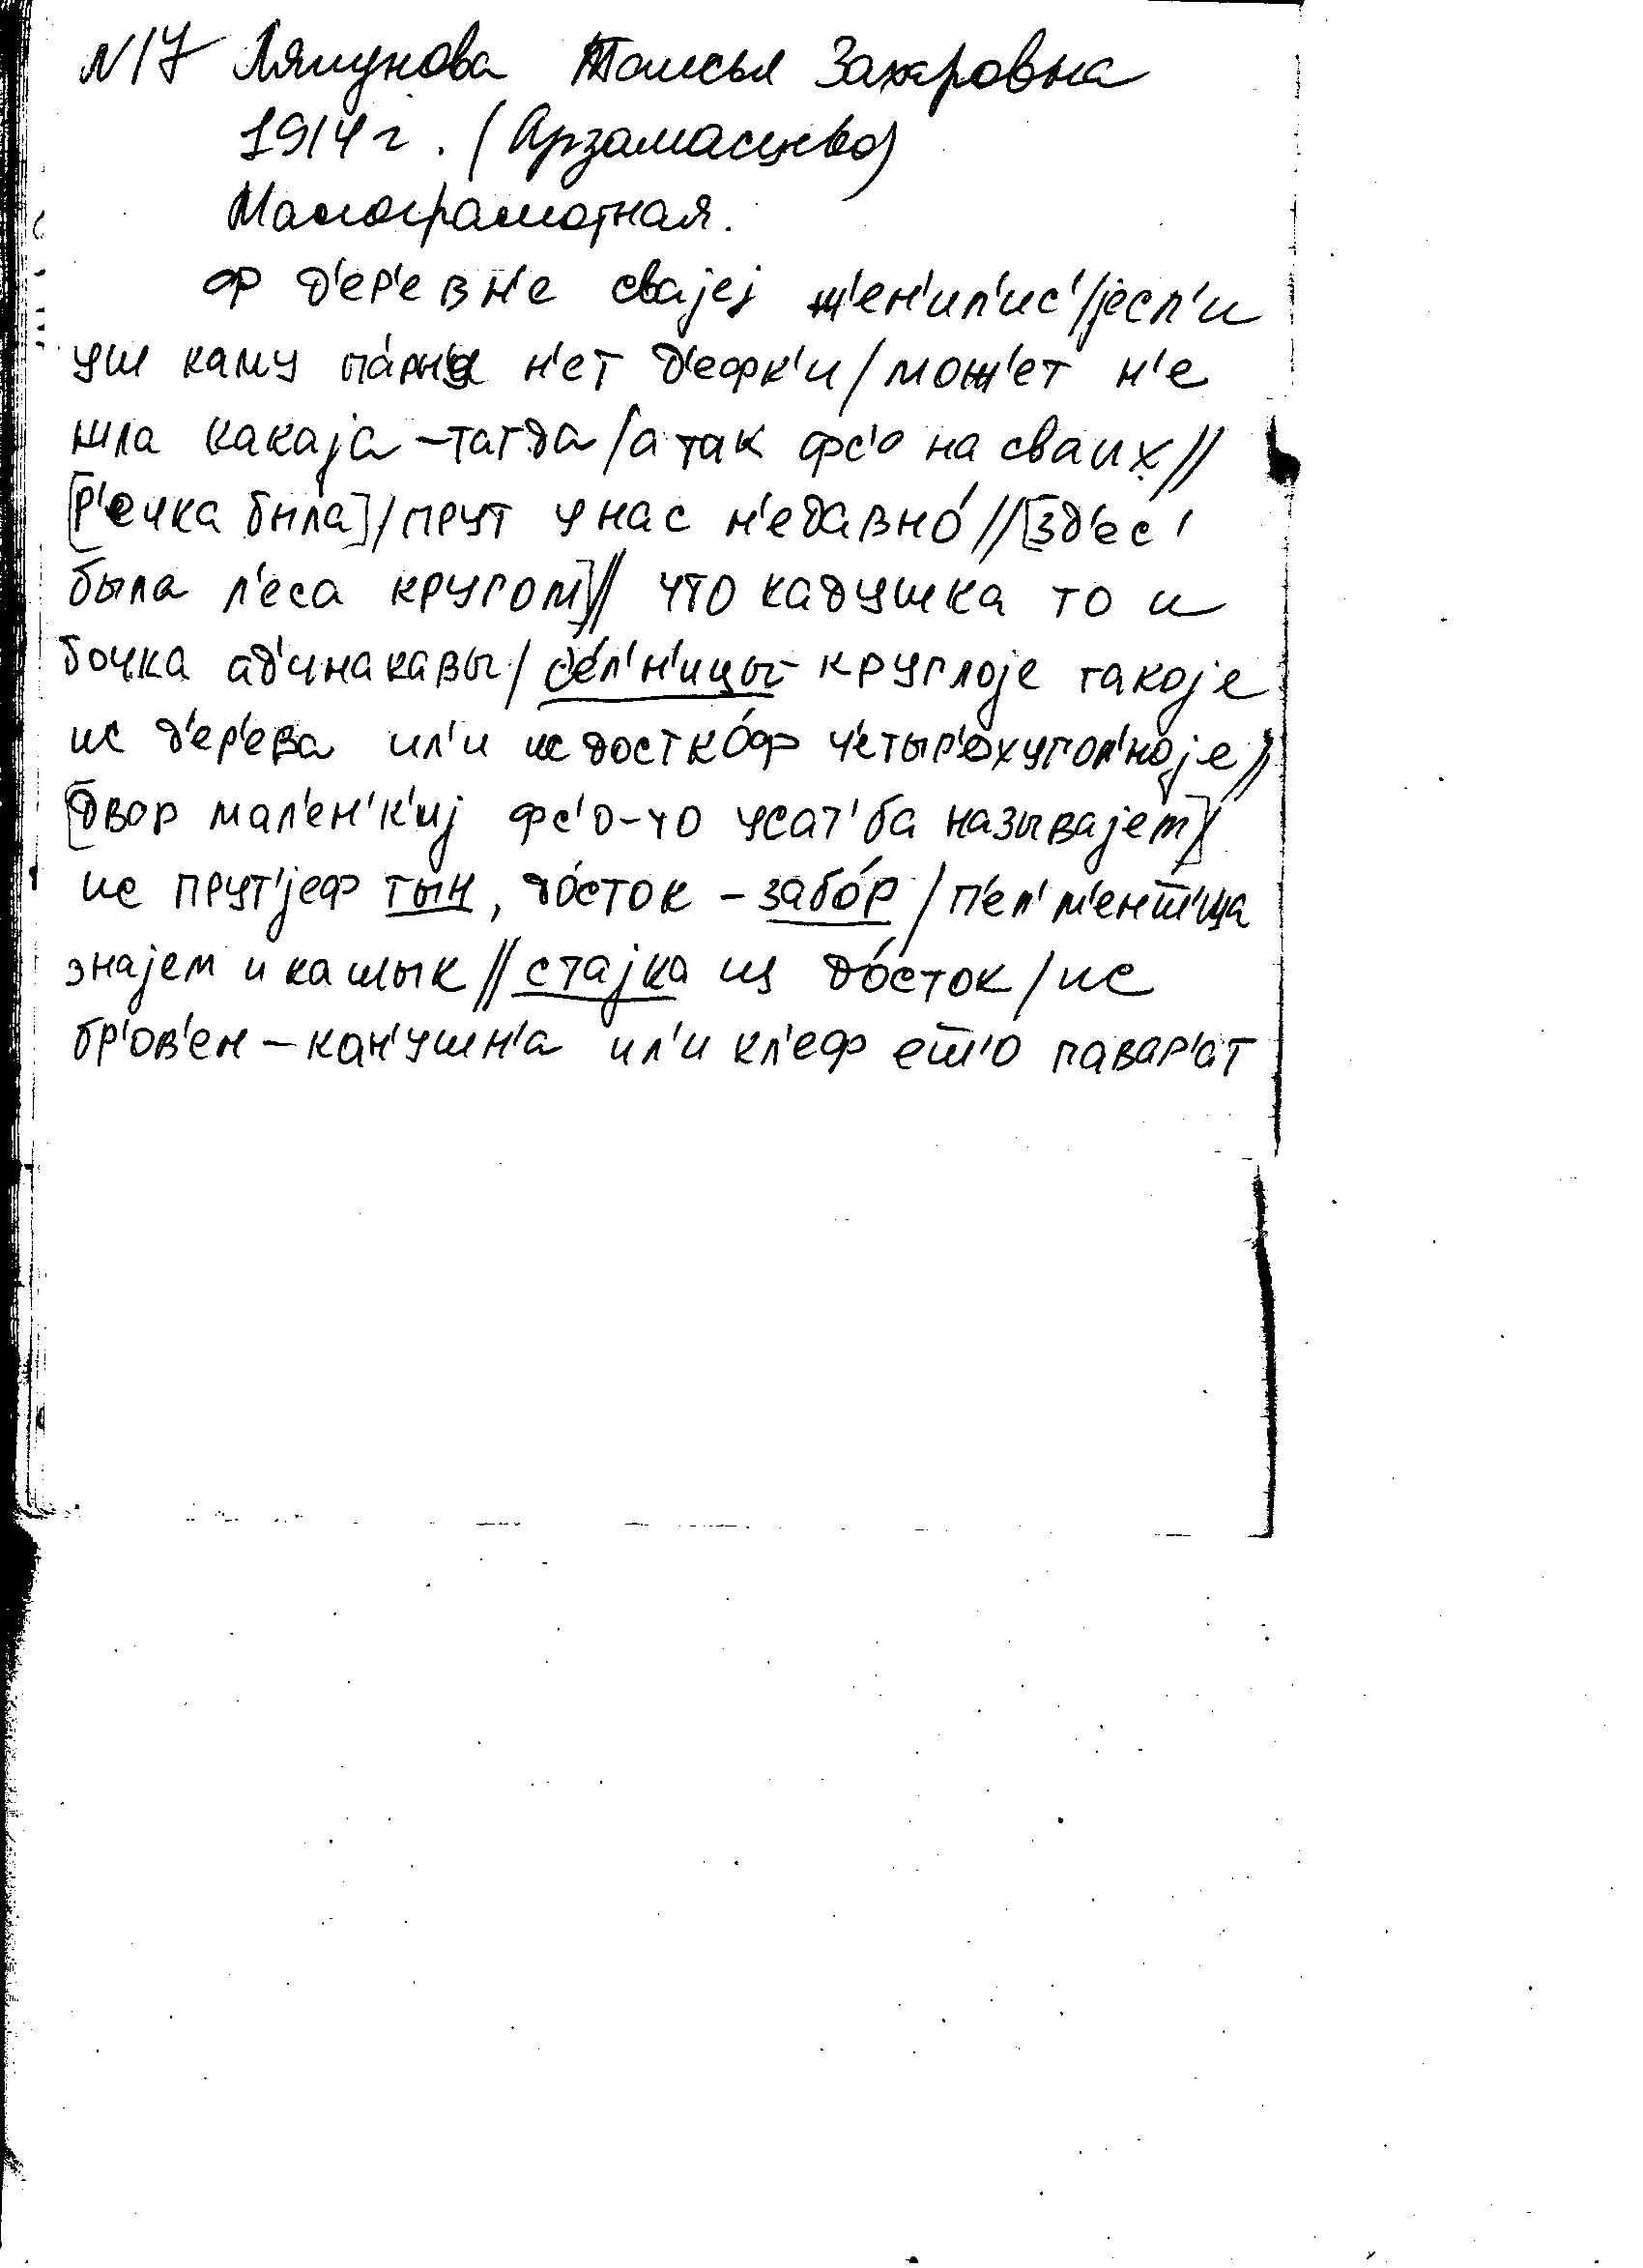 N17 Ляпунова Таисья Захаровна
1914 г. (Арзамасцево)
Малограмотная.
ф д'ер'евн'е свајеј ж'ен'ил'ис'/јесл'и
уш каму па́рн'у н'ет д'ефк'и/мож'ет н'е
шла какаја-тагда/а так фс'о на сваих//
[р'ечка была]/прут у нас н'едавно́//[зд'ес'
была л'еса кругом]// что кадушка то и
бочка ад'инакавы/се́л'н'ицы-круглоје такоје
ис д'ер'ева ил'и из достко́ф ч'етыр'охугол'ноје//
[двор мал'ен'к'иј фс'о-то усат'ба называјет]/
ис прут'јеф тын, до́сток - забо́р/п'ел'м'ен'т'ица
знајем и кашык//стајка из до́сток/ис
бр'ов'ен-кан'ушн'а ил'и кл'еф ешш'о павар'ат